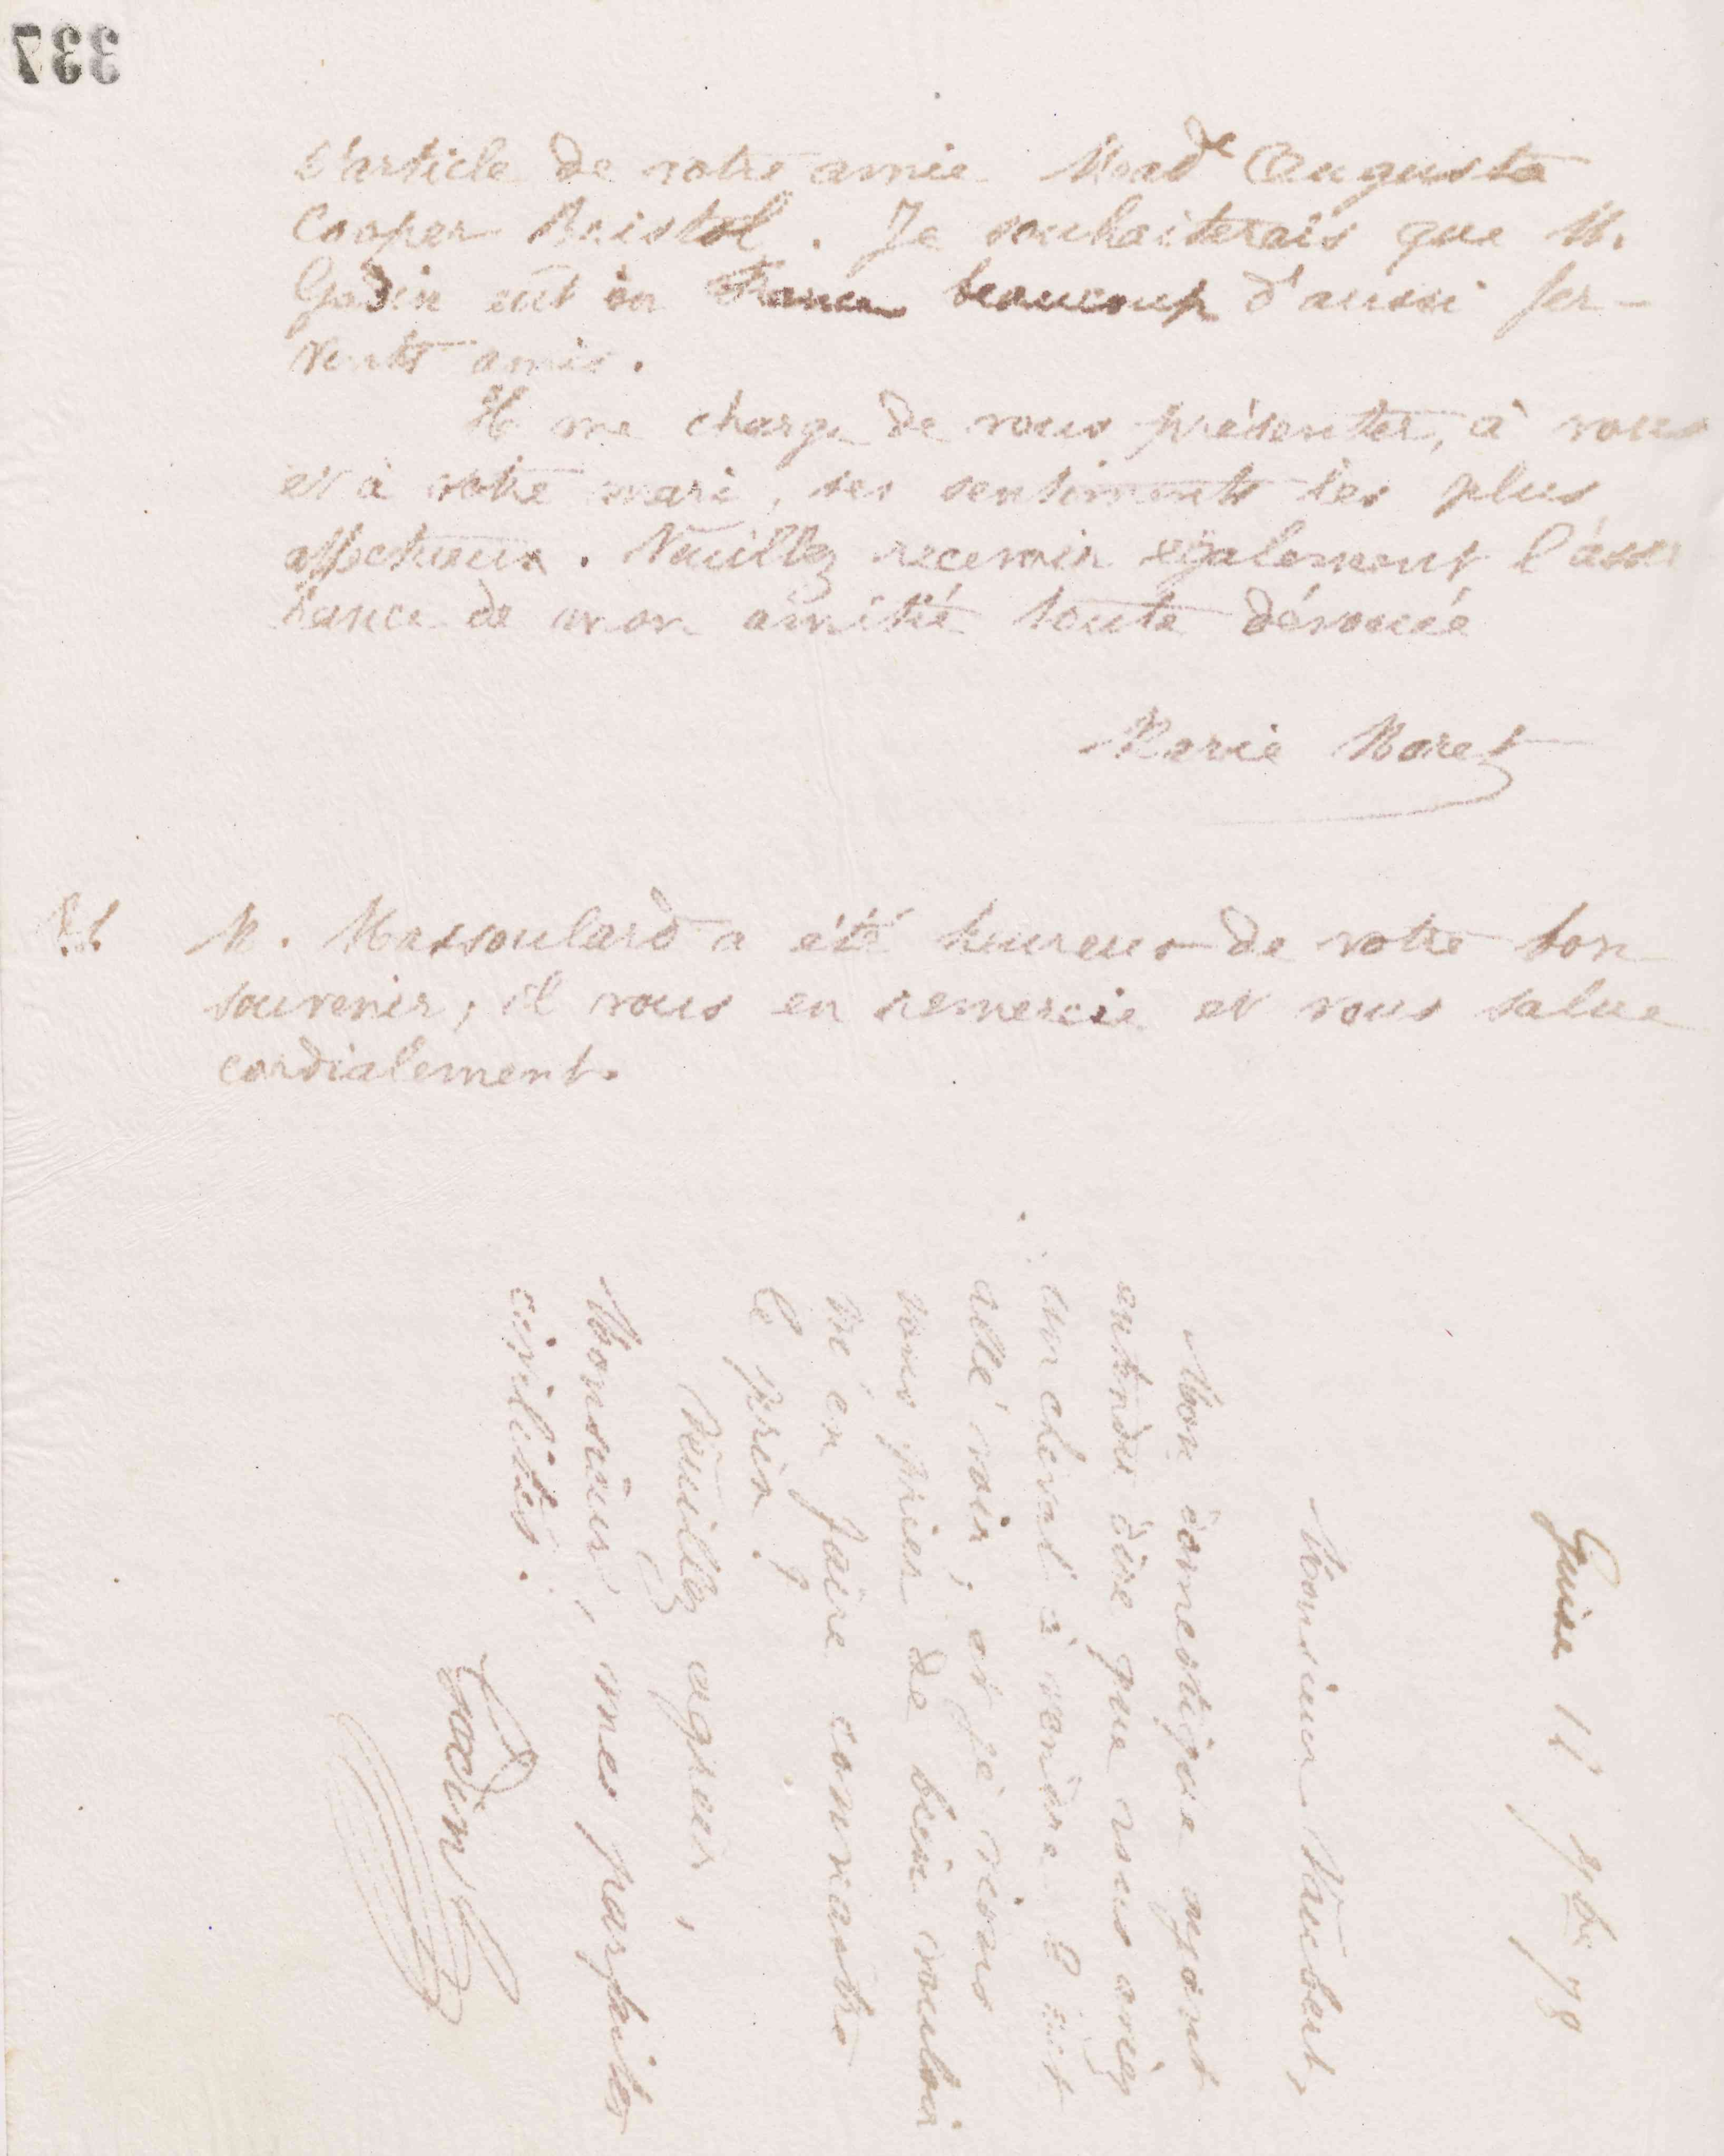 337
l'article de votre amie Mad^e Augusta
Cooper Bristol. Je souhaiterais que M.
Godin eût en France beaucoup d'aussi fer-
vents amis.
Il me charge de vous présenter, à vous
et à votre mari, ses sentiments les plus
affectueux. Veuillez recevoir également l'assu
rance de mon amitié toute dévouée
Marie Moret
M. Massoulard a été heureux de votre bon
souvenir; il vous en remercie et vous salue
cordialement.
Guise 11 9bre 78
Monsieur
Mon domestique ayant
entendu dire que vous aviez
un cheval à vendre l'est
allé voir; et je viens
vous prier de bien vouloir
m'en faire connaître
le prix.
Veuillez agréer,
Monsieur, mes parfaites
civilités.
Godin